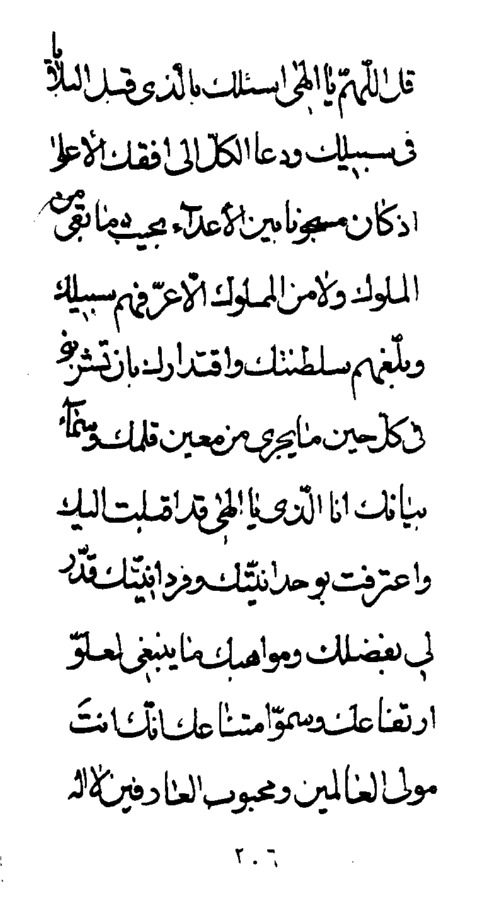 قل اللّهمّ يا الهى اسئلك بالّذى قبل البلايا
فى سبيلك ودعا الكلّ الى افقك الأعلى
اذ كان مسجونا بين الأعدآء بحيث ما بقى من
الملوك ولا من المملوك الّا عرّفهم سبيلك
وبلّغهم سلطنتك واقتدارك بان تشربنى
فى كلّ حين ما يجرى من معين قلمك وسمآء
بيانك انا الّذى يا الهى قد اقبلت اليك
واعترفت بوحدانيّتك وفردانيّتك قدّر
لى بفضلك ومواهبك ما ينبغى لعلوّ
ارتفاعك وسموّ امتناعك انّك انتَ
مولى العالمين ومحبوب العارفين لا اله
٢٠٦